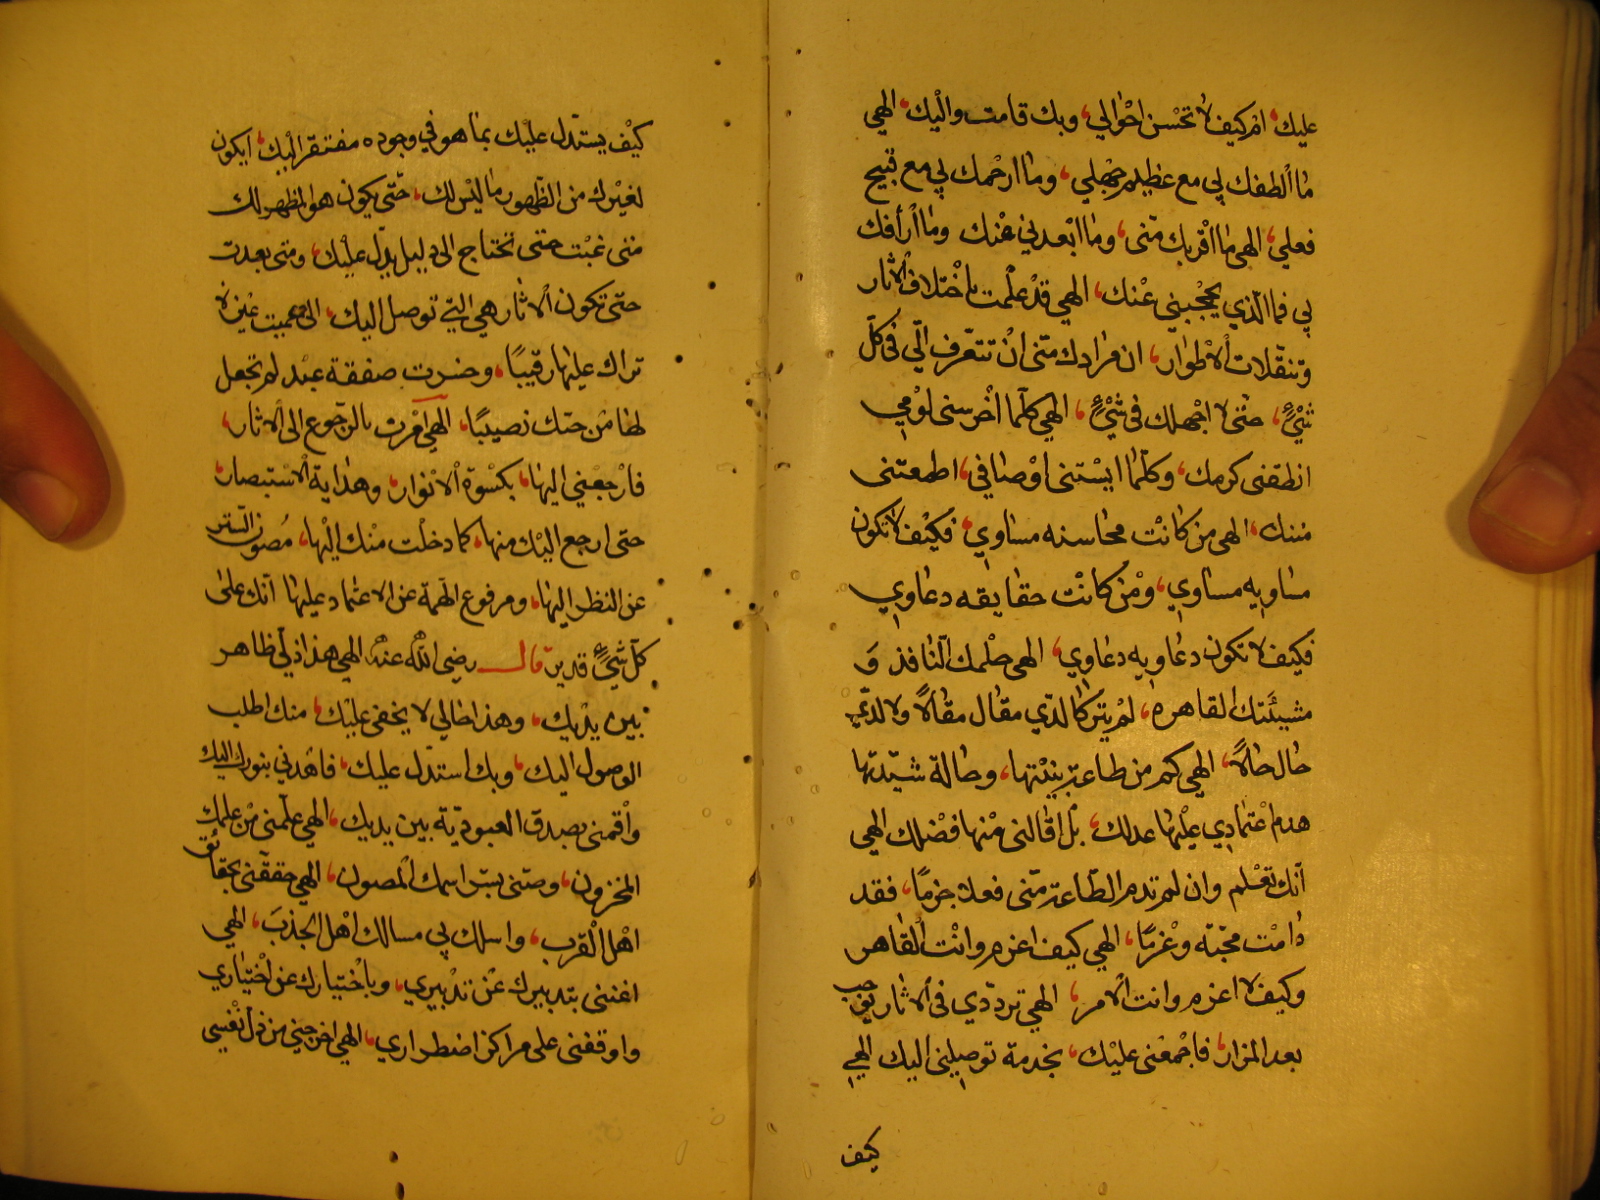 عليك، ام كيف لا تحسن احوالي، وبك قامت واليك، الهي
ما الطفك بي مع عظيم جهلي، وما ارحمك بي مع قبيح
فعلي، الهي ما اقربك مني، وما ابعدني عنك وما ارأفك
بي فما الذي يحجبني عنك، الهي قد علمت باختلاف الاثار
وتنقلات الاطوار، ان مرادك مني ان تتعرف الي في كل
شيء، حتى لا اجهلك في شيء، الهي كلما اخرسني لومي
انطقني كرمك، وكلما ايستني اوصافي، اطمعتني
مننك، الهي من كانت محاسنه مساوي، فكيف لا تكون
مساويه مساوي، ومن كانت حقايقه دعاوي
فكيف لا تكون دعاويه دعاوي، الهي حكمك النافذ و
مشيئتك القاهره، لم يتركا لذي مقال مقالا ولا لذي
حال حالا، الهي كم من طاعة بنيتها، وحالة شيدتها
هدم اعتمادي عليها عدلك، بل اقالني منها فضلك الهي
انك تعلم وان لم تدم الطاعة مني فعلا جزما، فقد
دامت محبة وعزما، الهي كيف اعزم وانت القاهر
وكيف لا اعزم وانت الامر، الهي ترددي في الاثار يوجب
بعد المزار، فاجمعني عليك، بخدمة توصلني اليك الهي
كيف
كيف يستدل عليك بما هو في وجوده مفتقر اليك، ايكون
لغيرك من الظهور ما ليس لك، حتى يكون هو المظهر لك
متى غبت حتى تحتاج الى دليل يدل عليك، ومتى بعدت
حتى تكون الاثار هي التي توصل اليك، الهي عميت عين لا
تراك عليها رقيبا، وخسرت صفقة عبد لم تجعل
لها من حبك نصيبا، الهي امرت بالرجوع الى الاثار،
فارجعني اليها، بكسوة الانوار، وهداية الاستبصار،
حتى ارجع اليك منها، كما دخلت منك اليها، مصون السر
عن النظر اليها، ومرفوع الهمة عن الاعتماد عليها انك على
كل شيء قدير قال رضي الله عنه الهي هذا ذلي ظاهر
بين يديك، وهذا حالي لا يخفى عليك، منك اطلب
الوصول اليك، وبك استدل عليك، فاهدني بنورك اليك
واقمني بصدق العبودية بين يديك، الهي علمني من علمك
المخزون، وصني بسر اسمك المصون، الهي حققني بحقائق
اهل القرب، واسلك بي مسالك اهل الجذب، الهي
اغنني بتدبيرك عن تدبيري، وباختيارك عن اختياري
واوقفني على مراكز اضطراري، الهي اخرجني من ذل نفسي